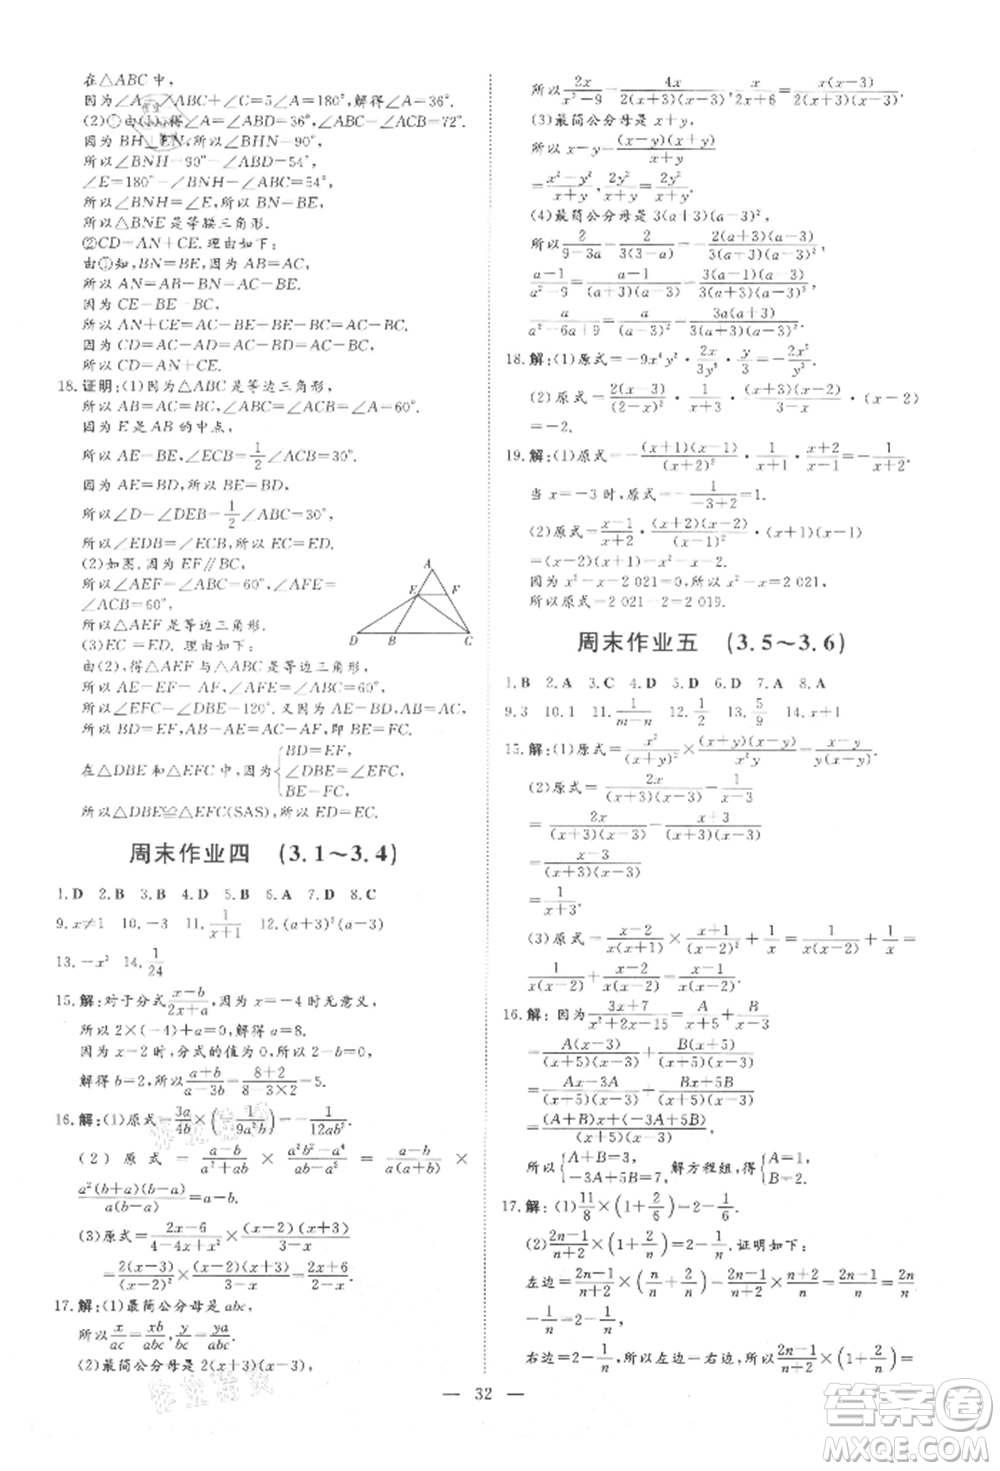 在△ABC中,
因为∠A+∠ABC+∠C=5∠A=180°,解得∠A=36°.
(2)①由(1),得∠A=∠ABD=36°,∠ABC=∠C=72°.
因为BH⊥EN,所以∠BHN=90°.
所以∠BNH=90°-∠ABD=54°,
所以∠BNH=∠E,所以BN=BE,
所以△BNE是等腰三角形.
②CD=AN+CE.理由如下:
由①知,BN=BE,因为AB=AC,
所以AN=AB-BN=AC-BE,
因为CE=BE-BC,
所以AN+CE=AC-BE+BE-BC=AC-BC,
所以CD=AN+CE.
18.证明:(1)因为△ABC是等边三角形,
所以AB=AC=BC,∠ABC=∠ACB=∠A=60°.
因为E是AB的中点,
所以AE=BE,∠BCE=1/2∠ACB=30°.
因为AE=BD,所以BE=BD,
所以∠D=∠DEB=1/2∠ABC=30°,
所以∠EDB=∠ECB,所以EC=ED.
(2)如图.因为EF∥BC,
所以∠AEF=∠ABC=60°,∠AFE=
∠ACB=60°,
所以△AEF为等边三角形.
A
E F
D B C
(3)EC=ED.理由如下:
由(2),得△AEF是等边三角形,
所以AE=EF=AF,∠AEF=∠AFE=60°,
所以∠EFC=∠DBE=120°.又因为AE=BD,
所以BD=EF,AB-AE=AC-AF,即BE=FC.
在△DBE和△EFC中,因为{BD=EF, ∠DBE=∠EFC, BE=FC,
所以△DBE≌△EFC(SAS),所以ED=EC.
周末作业四 (3.1～3.4)
1.D 2.B 3.B 4.D 5.B 6.B 7.D 8.C
9.x≠1 10.-3 11.1/(x+1) 12.(a+3)²(a-3)
13.-x² 14.1/24
15.解:对于分式(x-b)/(2x+a),因为x=-4时无意义,
所以2×(-4)+a=0,解得a=8.
因为x=2时,分式的值为0,所以2-b=0,
解得b=2.所以(a+b)/(a-3b)=(8+2)/(8-3×2)=5.
16.解:(1)原式=3a/4b×(-1/9a²b)=-1/12ab².
(2)原式=(a-b)/(a²+ab)×(a²b²-a⁴)/(ab-a²)=(a-b)/(a(a+b))×
a²(b+a)(b-a)/(a(b-a))=a-b.
(3)原式=(2x-6)/(4-4x+x²)×1/(x+3)×(x+3)(x-2)/(3-x)
=2(x-3)/(x-2)²×1/(x+3)×(x+3)(x-2)/(3-x)=-2/(x-2).
17.解:(1)最简公分母是abc,
所以x/ac=xb/abc,y/bc=ya/abc.
(2)最简公分母是2(x+3)(x-3),
所以2x/(x²-9)=4x/(2(x+3)(x-3)),x/(2x+6)=x(x-3)/(2(x+3)(x-3)).
(3)最简公分母是x+y,
所以x-y=(x-y)(x+y)/(x+y)
=(x²-y²)/(x+y),2y²/(x+y)=2y²/(x+y).
(4)最简公分母是3(a+3)(a-3)²,
所以2/(9-3a)=2/(3(3-a))=-2(a+3)(a-3)/(3(a+3)(a-3)²),
(a-1)/(a²-9)=(a-1)/((a+3)(a-3))=3(a-1)(a-3)/(3(a+3)(a-3)²),
a/(a²-6a+9)=a/(a-3)²=3a(a+3)/(3(a+3)(a-3)²).
(2)原式=2(x-3)/(2-x)²·1/(x+3)·(x+3)(x-2)/(3-x)·(x-2)
=-2.
19.解:(1)原式=(x+1)(x-1)/(x+2)²·1/(x+1)·(x+2)/(x-1)=1/(x+2),
当x=-3时,原式=1/(-3+2)=-1.
(2)原式=(x-1)/(x+2)·(x+2)(x-2)/(x-1)²·(x+1)(x-1)
=(x-2)(x+1)=x²-x-2.
因为x²-x-2 021=0,所以x²-x=2 021,
所以原式=2 021-2=2 019.
周末作业五 (3.5～3.6)
1.B 2.A 3.C 4.D 5.D 6.D 7.A 8.A
9.3 10.1 11.1/(m-n) 12.1/2 13.5/9 14.x+1
15.解:(1)原式=x²/(x-y)×(x+y)(x-y)/(x(x+y))
(2)原式=2x/((x+3)(x-3))-(x+3)/((x+3)(x-3))
=(x-3)/((x+3)(x-3))
=1/(x+3).
16.解:因为(3x+7)/(x²+2x-15)=A/(x+5)+B/(x-3)
=A(x-3)/((x+5)(x-3))+B(x+5)/((x+5)(x-3))
=(Ax-3A)/((x+5)(x-3))+(Bx+5B)/((x+5)(x-3))
=((A+B)x+(-3A+5B))/((x+5)(x-3)),
所以{A+B=3, -3A+5B=7,解方程组,得{A=1, B=2.
17.解:(1)11/8×(1+2/6)=2-1/6.
(2)(2n-1)/(n+2)×(1+2/n)=2-1/n.证明如下:
左边=(2n-1)/(n+2)×(1+2/n)=(2n-1)/(n+2)×(n+2)/n=(2n-1)/n=2-
1/n,
右边=2-1/n,所以左边=右边,所以(2n-1)/(n+2)×(1+2/n)=
32
答案圈
MXQE.COM